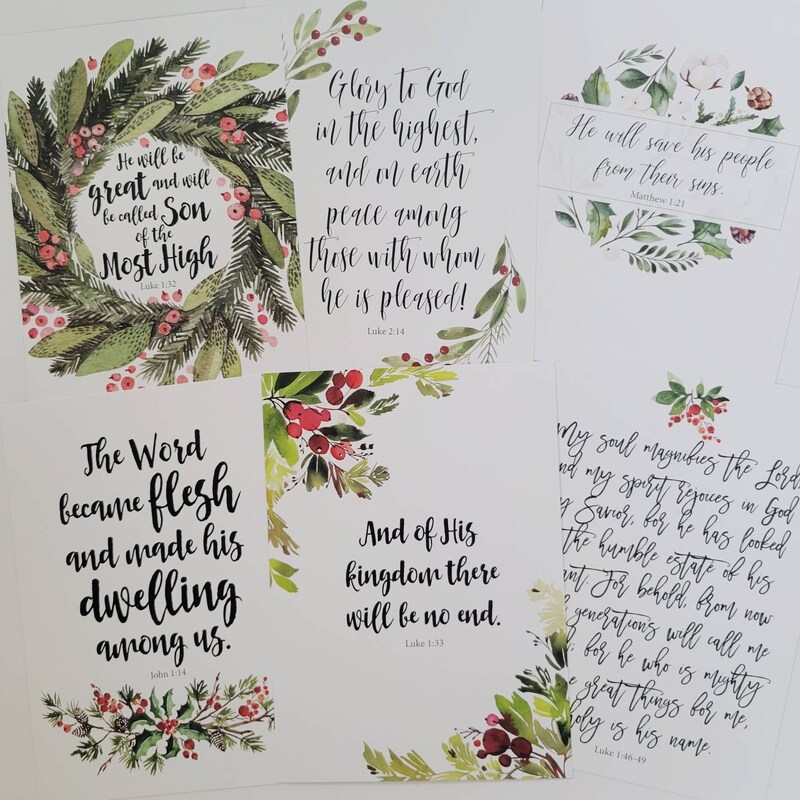 He will be
great and will
be called Son
of the
Most High
Luke 1:32
Glory to God
in the highest,
and on earth
peace among
those with whom
he is pleased!
Luke 2:14
He will save his people
from their sins.
Matthew 1:21
The Word
became flesh
and made his
dwelling
among us.
John 1:14
And of His
kingdom there
will be no end.
Luke 1:33
My soul magnifies the Lord
and my spirit rejoices in God
Savior, for he has looked
the humble estate of his
For behold, from now
generations will call me
for he who is mighty
great things for me,
holy is his name.
Luke 1:46-49